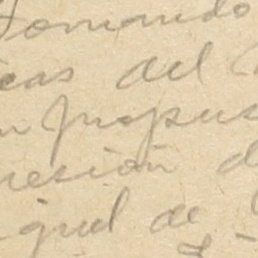 Tomando
icas del
n propus
resión d
iguel de